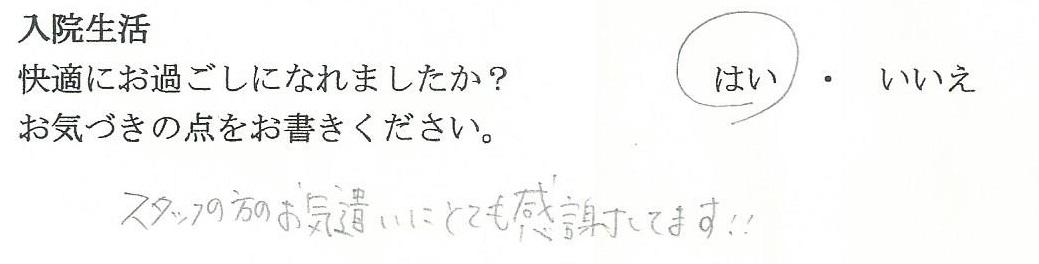 入院生活
快適にお過ごしになれましたか？ はい ・ いいえ
お気づきの点をお書きください。
スタッフの方のお気遣いにとても感謝してます!!